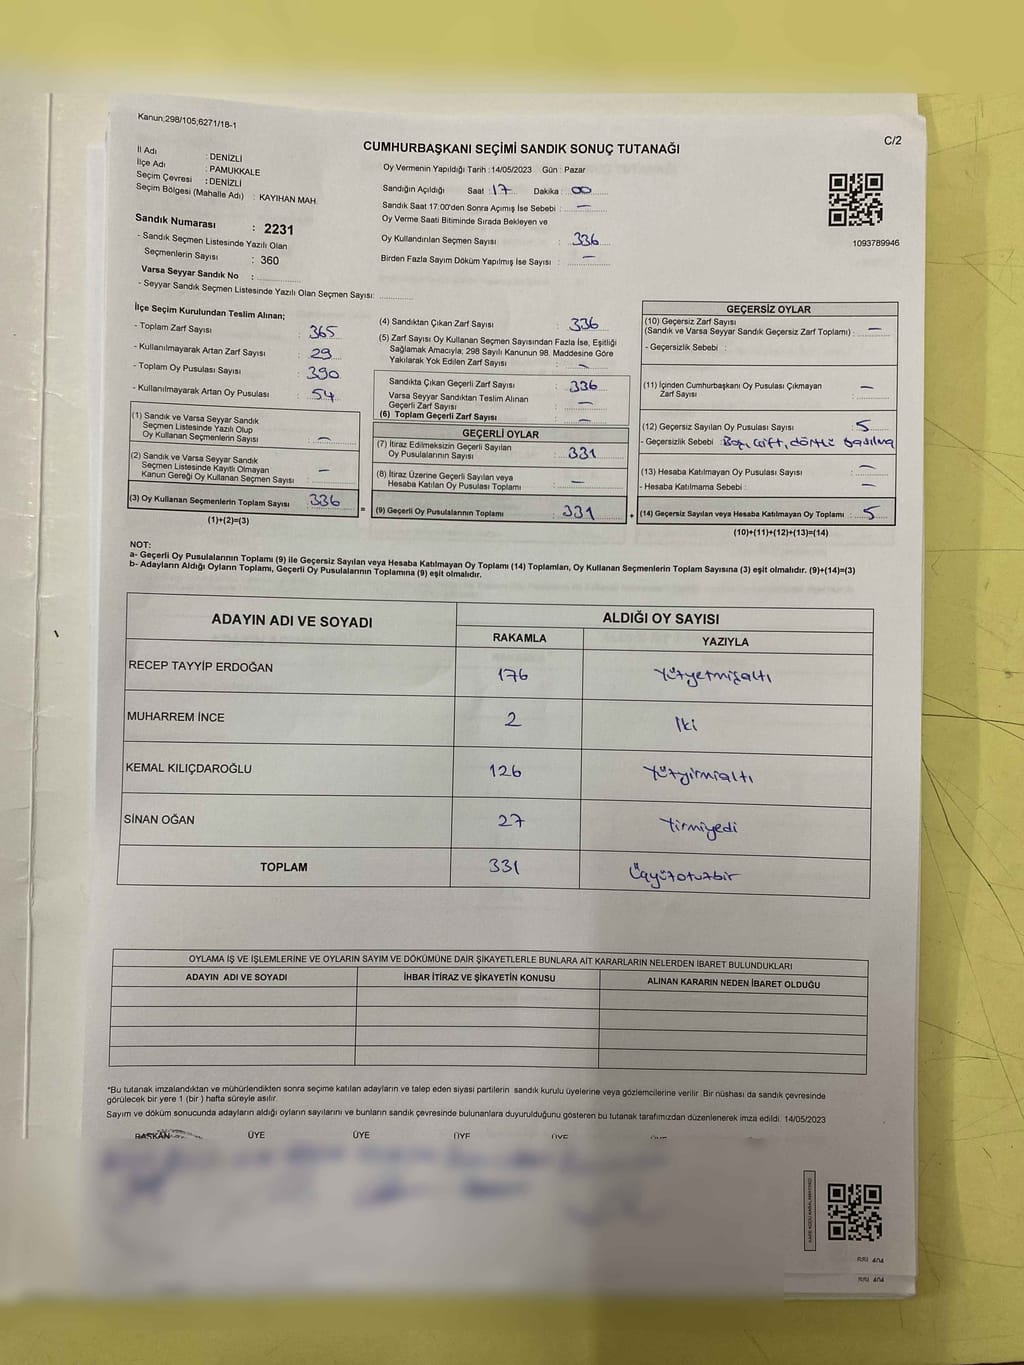 Kanun;298/105;6271/18-1
C/2
CUMHURBAŞKANI SEÇİMİ SANDIK SONUÇ TUTANAĞI
İl Adı : DENİZLİ
İlçe Adı : PAMUKKALE
Seçim Çevresi : DENİZLİ
Seçim Bölgesi (Mahalle Adı) : KAYIHAN MAH.
Sandık Numarası : 2231
- Sandık Seçmen Listesinde Yazılı Olan
Seçmenlerin Sayısı : 360
Varsa Seyyar Sandık No :
- Seyyar Sandık Seçmen Listesinde Yazılı Olan Seçmen Sayısı:
Oy Vermenin Yapıldığı Tarih :14/05/2023 Gün : Pazar
Sandığın Açıldığı Saat : 17 Dakika : 00
Sandık Saat 17:00'den Sonra Açımış İse Sebebi : —
Oy Verme Saati Bitiminde Sırada Bekleyen ve
Oy Kullandırılan Seçmen Sayısı : 336
Birden Fazla Sayım Döküm Yapılmış İse Sayısı : —
1093789946
İlçe Seçim Kurulundan Teslim Alınan;
- Toplam Zarf Sayısı : 365
- Kullanılmayarak Artan Zarf Sayısı : 29
- Toplam Oy Pusulası Sayısı : 390
- Kullanılmayarak Artan Oy Pusulası : 54
(1) Sandık ve Varsa Seyyar Sandık
Seçmen Listesinde Yazılı Olup
Oy Kullanan Seçmenlerin Sayısı : —
(2) Sandık ve Varsa Seyyar Sandık
Seçmen Listesinde Kayıtlı Olmayan
Kanun Gereği Oy Kullanan Seçmen Sayısı : —
(3) Oy Kullanan Seçmenlerin Toplam Sayısı : 336
(1)+(2)=(3)
(4) Sandıktan Çıkan Zarf Sayısı : 336
(5) Zarf Sayısı Oy Kullanan Seçmen Sayısından Fazla İse, Eşitliği
Sağlamak Amacıyla; 298 Sayılı Kanunun 98. Maddesine Göre
Yakılarak Yok Edilen Zarf Sayısı : —
Sandıkta Çıkan Geçerli Zarf Sayısı : 336
Varsa Seyyar Sandıktan Teslim Alınan
Geçerli Zarf Sayısı : —
(6) Toplam Geçerli Zarf Sayısı : —
GEÇERLİ OYLAR
(7) İtiraz Edilmeksizin Geçerli Sayılan
Oy Pusulalarının Sayısı : 331
(8) İtiraz Üzerine Geçerli Sayılan veya
Hesaba Katılan Oy Pusulası Toplamı : —
= (9) Geçerli Oy Pusulalarının Toplamı : 331
GEÇERSİZ OYLAR
(10) Geçersiz Zarf Sayısı
(Sandık ve Varsa Seyyar Sandık Geçersiz Zarf Toplamı) : —
- Geçersizlik Sebebi :
(11) İçinden Cumhurbaşkanı Oy Pusulası Çıkmayan
Zarf Sayısı : —
(12) Geçersiz Sayılan Oy Pusulası Sayısı : 5
- Geçersizlik Sebebi : Boş, çift, dörtlü basılma
(13) Hesaba Katılmayan Oy Pusulası Sayısı : —
- Hesaba Katılmama Sebebi : —
+ (14) Geçersiz Sayılan veya Hesaba Katılmayan Oy Toplamı : 5
(10)+(11)+(12)+(13)=(14)
NOT:
a- Geçerli Oy Pusulalarının Toplamı (9) ile Geçersiz Sayılan veya Hesaba Katılmayan Oy Toplamı (14) Toplamları, Oy Kullanan Seçmenlerin Toplam Sayısına (3) eşit olmalıdır. (9)+(14)=(3)
b- Adayların Aldığı Oyların Toplamı, Geçerli Oy Pusulalarının Toplamına (9) eşit olmalıdır.
ADAYIN ADI VE SOYADI ALDIĞI OY SAYISI
RAKAMLA YAZIYLA
RECEP TAYYİP ERDOĞAN 176 Yüzyetmişaltı
MUHARREM İNCE 2 İki
KEMAL KILIÇDAROĞLU 126 Yüzyirmialtı
SİNAN OĞAN 27 Yirmiyedi
TOPLAM 331 Üçyüzotuzbir
OYLAMA İŞ VE İŞLEMLERİNE VE OYLARIN SAYIM VE DÖKÜMÜNE DAİR ŞİKAYETLERLE BUNLARA AİT KARARLARIN NELERDEN İBARET BULUNDUKLARI
ADAYIN ADI VE SOYADI İHBAR İTİRAZ VE ŞİKAYETİN KONUSU ALINAN KARARIN NEDEN İBARET OLDUĞU
*Bu tutanak imzalandıktan ve mühürlendikten sonra seçime katılan adayların ve talep eden siyasi partilerin sandık kurulu üyelerine veya gözlemcilerine verilir. Bir nüshası da sandık çevresinde
görülecek bir yere 1 (bir ) hafta süreyle asılır.
Sayım ve döküm sonucunda adayların aldığı oyların sayılarını ve bunların sandık çevresinde bulunanlara duyurulduğunu gösteren bu tutanak tarafımızdan düzenlenerek imza edildi. 14/05/2023
BAŞKAN ÜYE ÜYE ÜYE ÜYE ÜYE